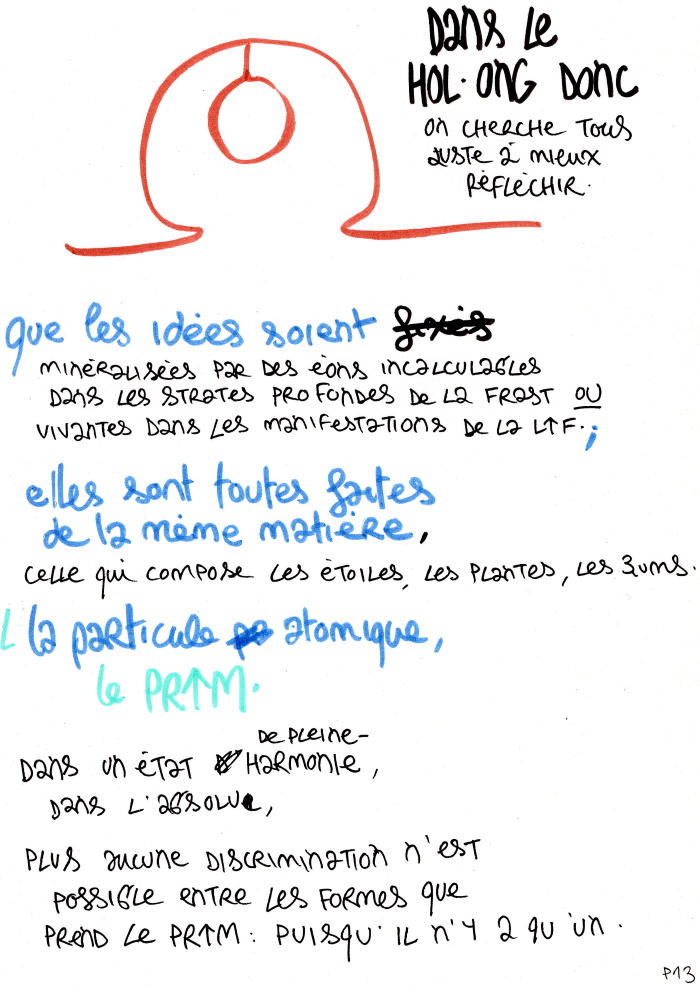 DANS LE
HOL·ONG DONC
ON CHERCHE TOUS
JUSTE À MIEUX
RÉFLÉCHIR.
que les idées soient fixés
MINÉRALISÉES PAR DES ÉONS INCALCULABLES
DANS LES STRATES PROFONDES DE LA FROST OU
VIVANTES DANS LES MANIFESTATIONS DE LA L↑F.;
elles sont toutes faites
de la même matière,
CELLE QUI COMPOSE LES ÉTOILES, LES PLANTES, LES ZUMS.
la particule atomique,
le PR↑M.
DE PLEINE-
DANS UN ÉTAT HARMONIE,
DANS L'ABSOLUE,
PLUS AUCUNE DISCRIMINATION N'EST
POSSIBLE ENTRE LES FORMES QUE
PREND LE PR↑M: PUISQU'IL N'Y A QU'UN.
P13